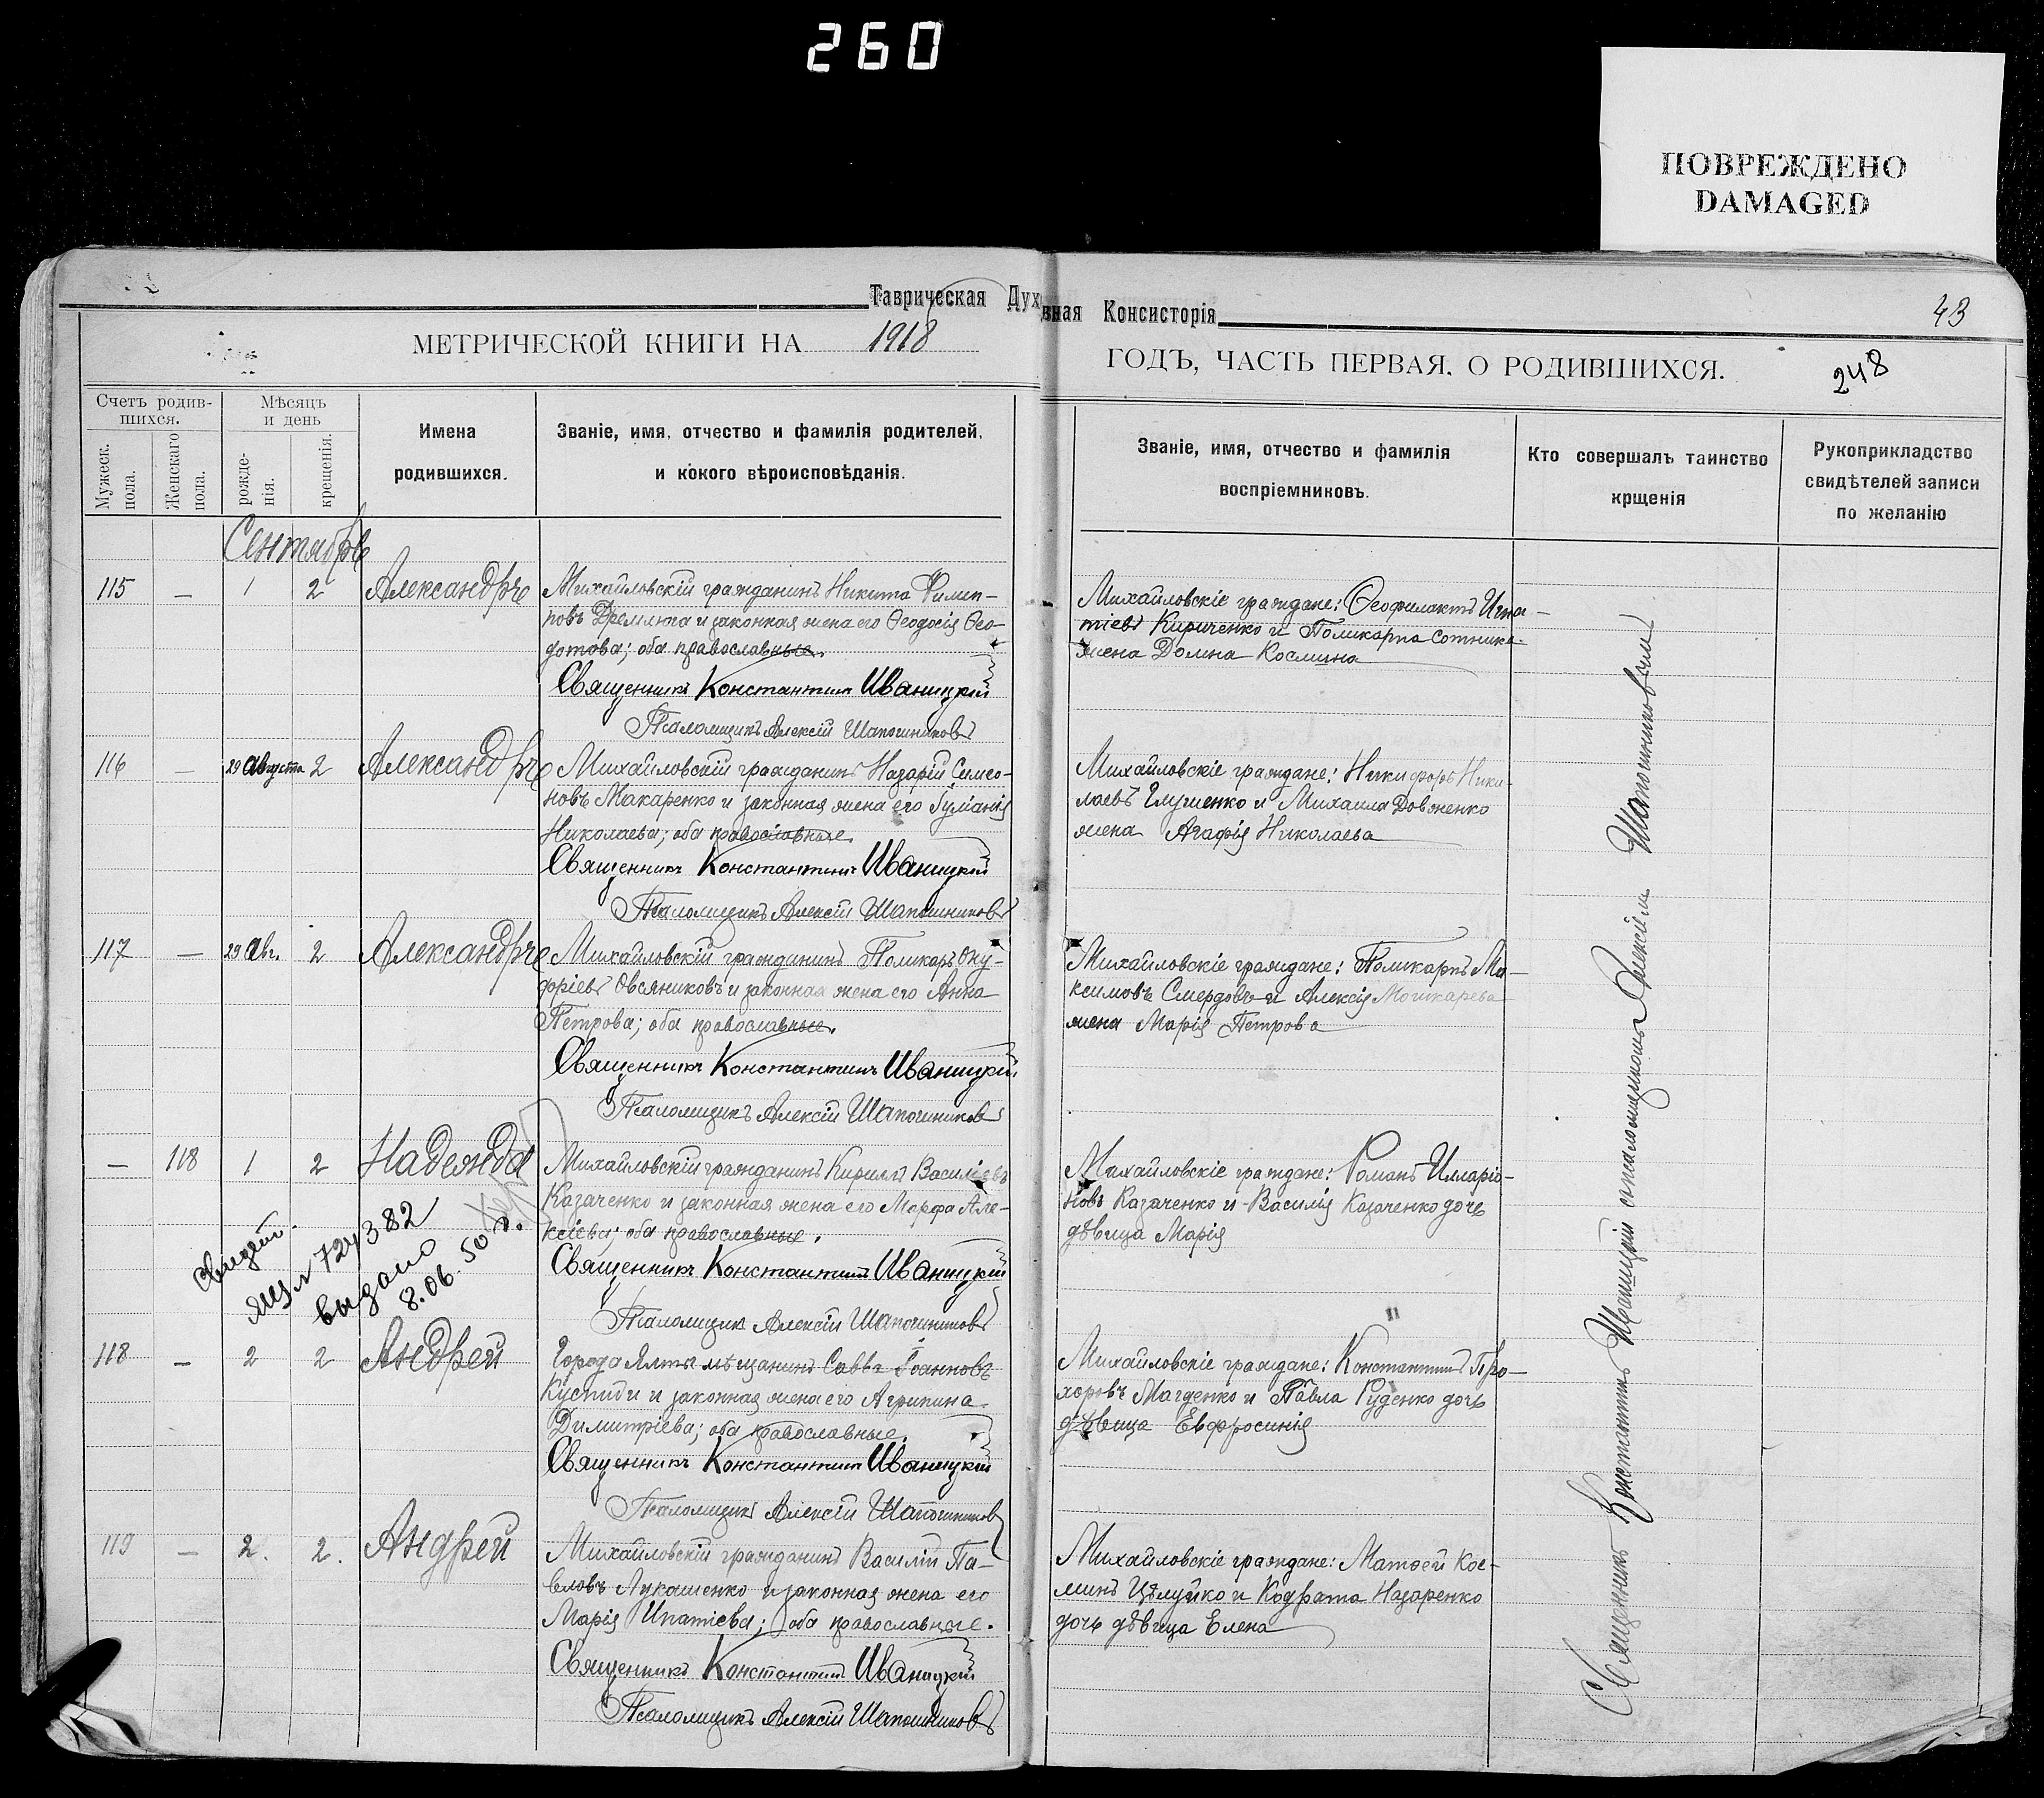 260
ПОВРЕЖДЕНО
DAMAGED
Таврическая Духовная Консисторія
43
МЕТРИЧЕСКОЙ КНИГИ НА 1918 ГОДЪ, ЧАСТЬ ПЕРВАЯ, О РОДИВШИХСЯ.
248
Счетъ родив-
шихся.
Мужеск.
пола.
Женскаго
пола.
Мѣсяцъ
и день
рожде-
нія.
крещенія.
Имена
родившихся.
Званіе, имя, отчество и фамилія родителей,
и кокого вѣроисповѣданія.
Званіе, имя, отчество и фамилія
воспріемниковъ.
Кто совершалъ таинство
крщенія
Рукоприкладство
свидѣтелей записи
по желанію
Сентябрь
115 — 1 2 Александръ
Михайловскій гражданинъ Никита Филип-
повъ Дремлюга и законная жена его Ѳеодосія Ѳео-
дотова; оба православные.
Священникъ Константинъ Иваницкій
Псаломщикъ Алексій Шапошниковъ
Михайловскіе граждане: Ѳеофилактъ Игна-
тіевъ Кириченко и Поликарпа Сотника
жена Домна Космина
116 — 29 августа 2 Александръ
Михайловскій гражданинъ Назарій Симео-
новъ Макаренко и законная жена его Іуліанія
Николаева; оба православные.
Священникъ Константинъ Иваницкій
Псаломщикъ Алексій Шапошниковъ
Михайловскіе граждане: Никифоръ Нико-
лаевъ Глушенко и Михаила Довженко
жена Агафія Николаева
117 — 29 Авг. 2 Александръ
Михайловскій гражданинъ Поликарпъ Ону-
фріевъ Овсяниковъ и законная жена его Анна
Петрова; оба православные.
Священникъ Константинъ Иваницкій
Псаломщикъ Алексій Шапошниковъ
Михайловскіе граждане: Поликарпъ Ма-
ксимовъ Смердовъ и Алексія Мошкарева
жена Марія Петрова
— 118 1 2 Надежда
Михайловскій гражданинъ Кириллъ Василіевъ
Казаченко и законная жена его Марфа Але-
ксіева; оба православные.
Священникъ Константинъ Иваницкій
Псаломщикъ Алексій Шапошниковъ
Михайловскіе граждане: Романъ Илларіо-
новъ Казаченко и Василія Казаченко дочь
дѣвица Марія
Свидет.
724382
выдано
8.06.50 г.
118 — 2 2 Андрей
Города Ялты мѣщанинъ Савва Іоанновъ
Куспиди и законная жена его Агрипина
Димитріева; оба православные.
Священникъ Константинъ Иваницкій
Псаломщикъ Алексій Шапошниковъ
Михайловскіе граждане: Константинъ Про-
хоровъ Магденко и Павла Руденко дочь
дѣвица Евфросинія
119 — 2. 2. Андрей
Михайловскій гражданинъ Василій Па-
вловъ Лукашенко и законная жена его
Марія Ипатіева; оба православные.
Священникъ Константинъ Иваницкій
Псаломщикъ Алексій Шапошниковъ
Михайловскіе граждане: Матѳей Кос-
минъ Цѣлуйко и Кодрата Назаренко
дочь дѣвица Елена
Священникъ Константинъ Иваницкій съ псаломщикомъ Алексіемъ Шапошниковымъ